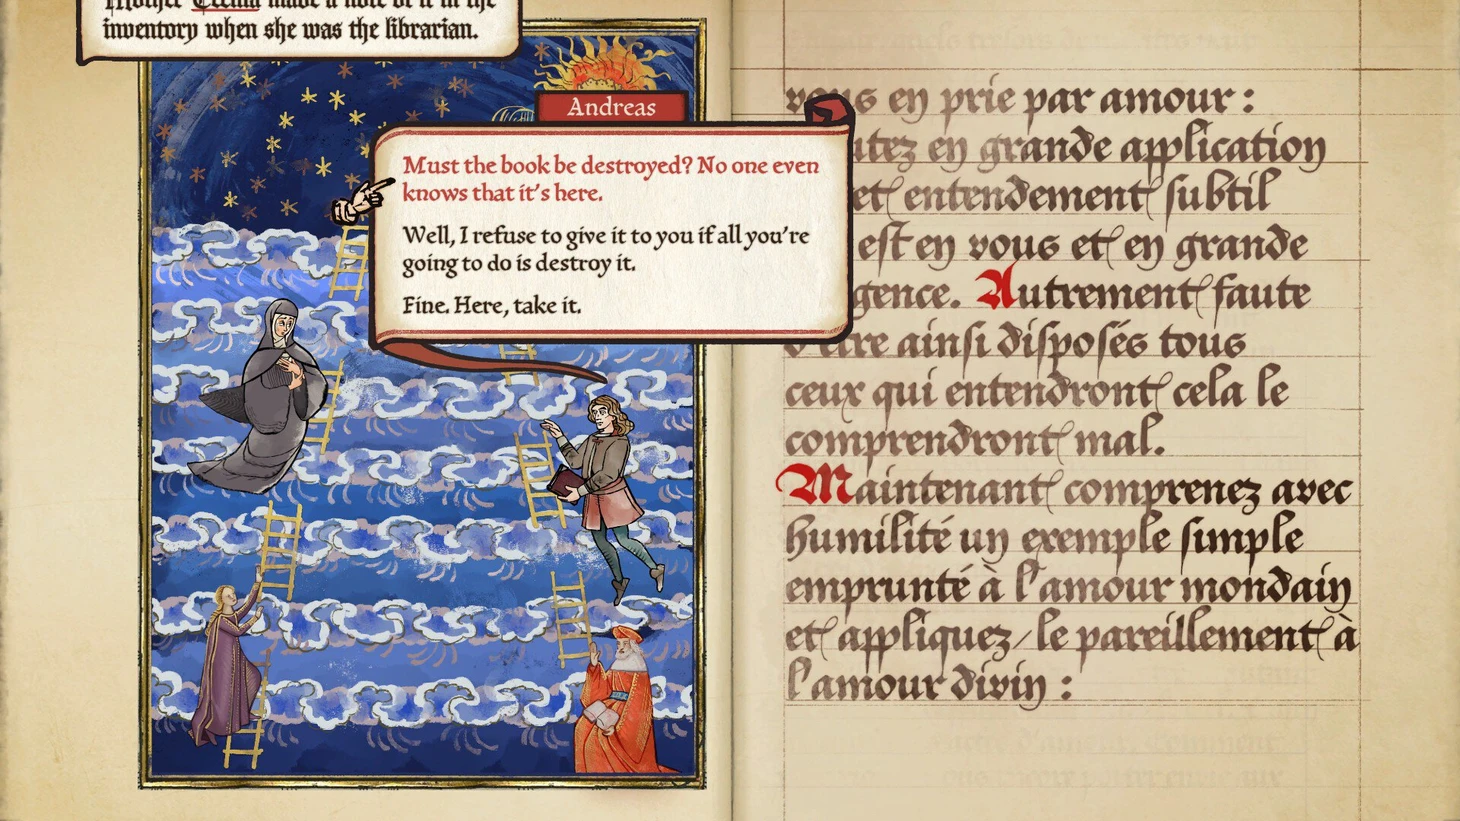 Mother Cecilia made a note of it in the
inventory when she was the librarian.
Andreas
Must the book be destroyed? No one even
knows that it's here.
Well, I refuse to give it to you if all you're
going to do is destroy it.
Fine. Here, take it.
vous en prie par amour :
en grande application
et entendement subtil
est en vous et en grande
Autrement faute
ainsi disposés tous
ceux qui entendront cela le
comprendront mal.
Maintenant comprenez avec
humilité un exemple simple
emprunté à l'amour mondain
et appliquez / le pareillement à
l'amour divin :